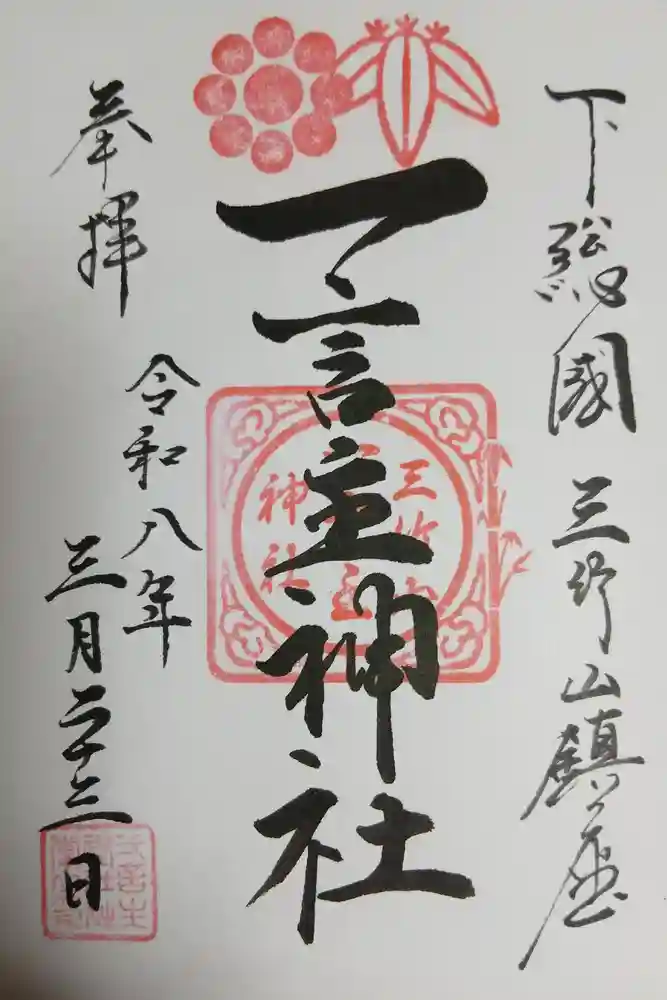 下総國三竹山鎮座
一言主神社
三竹山
一言主
神社
奉拝
令和八年
三月二十三日